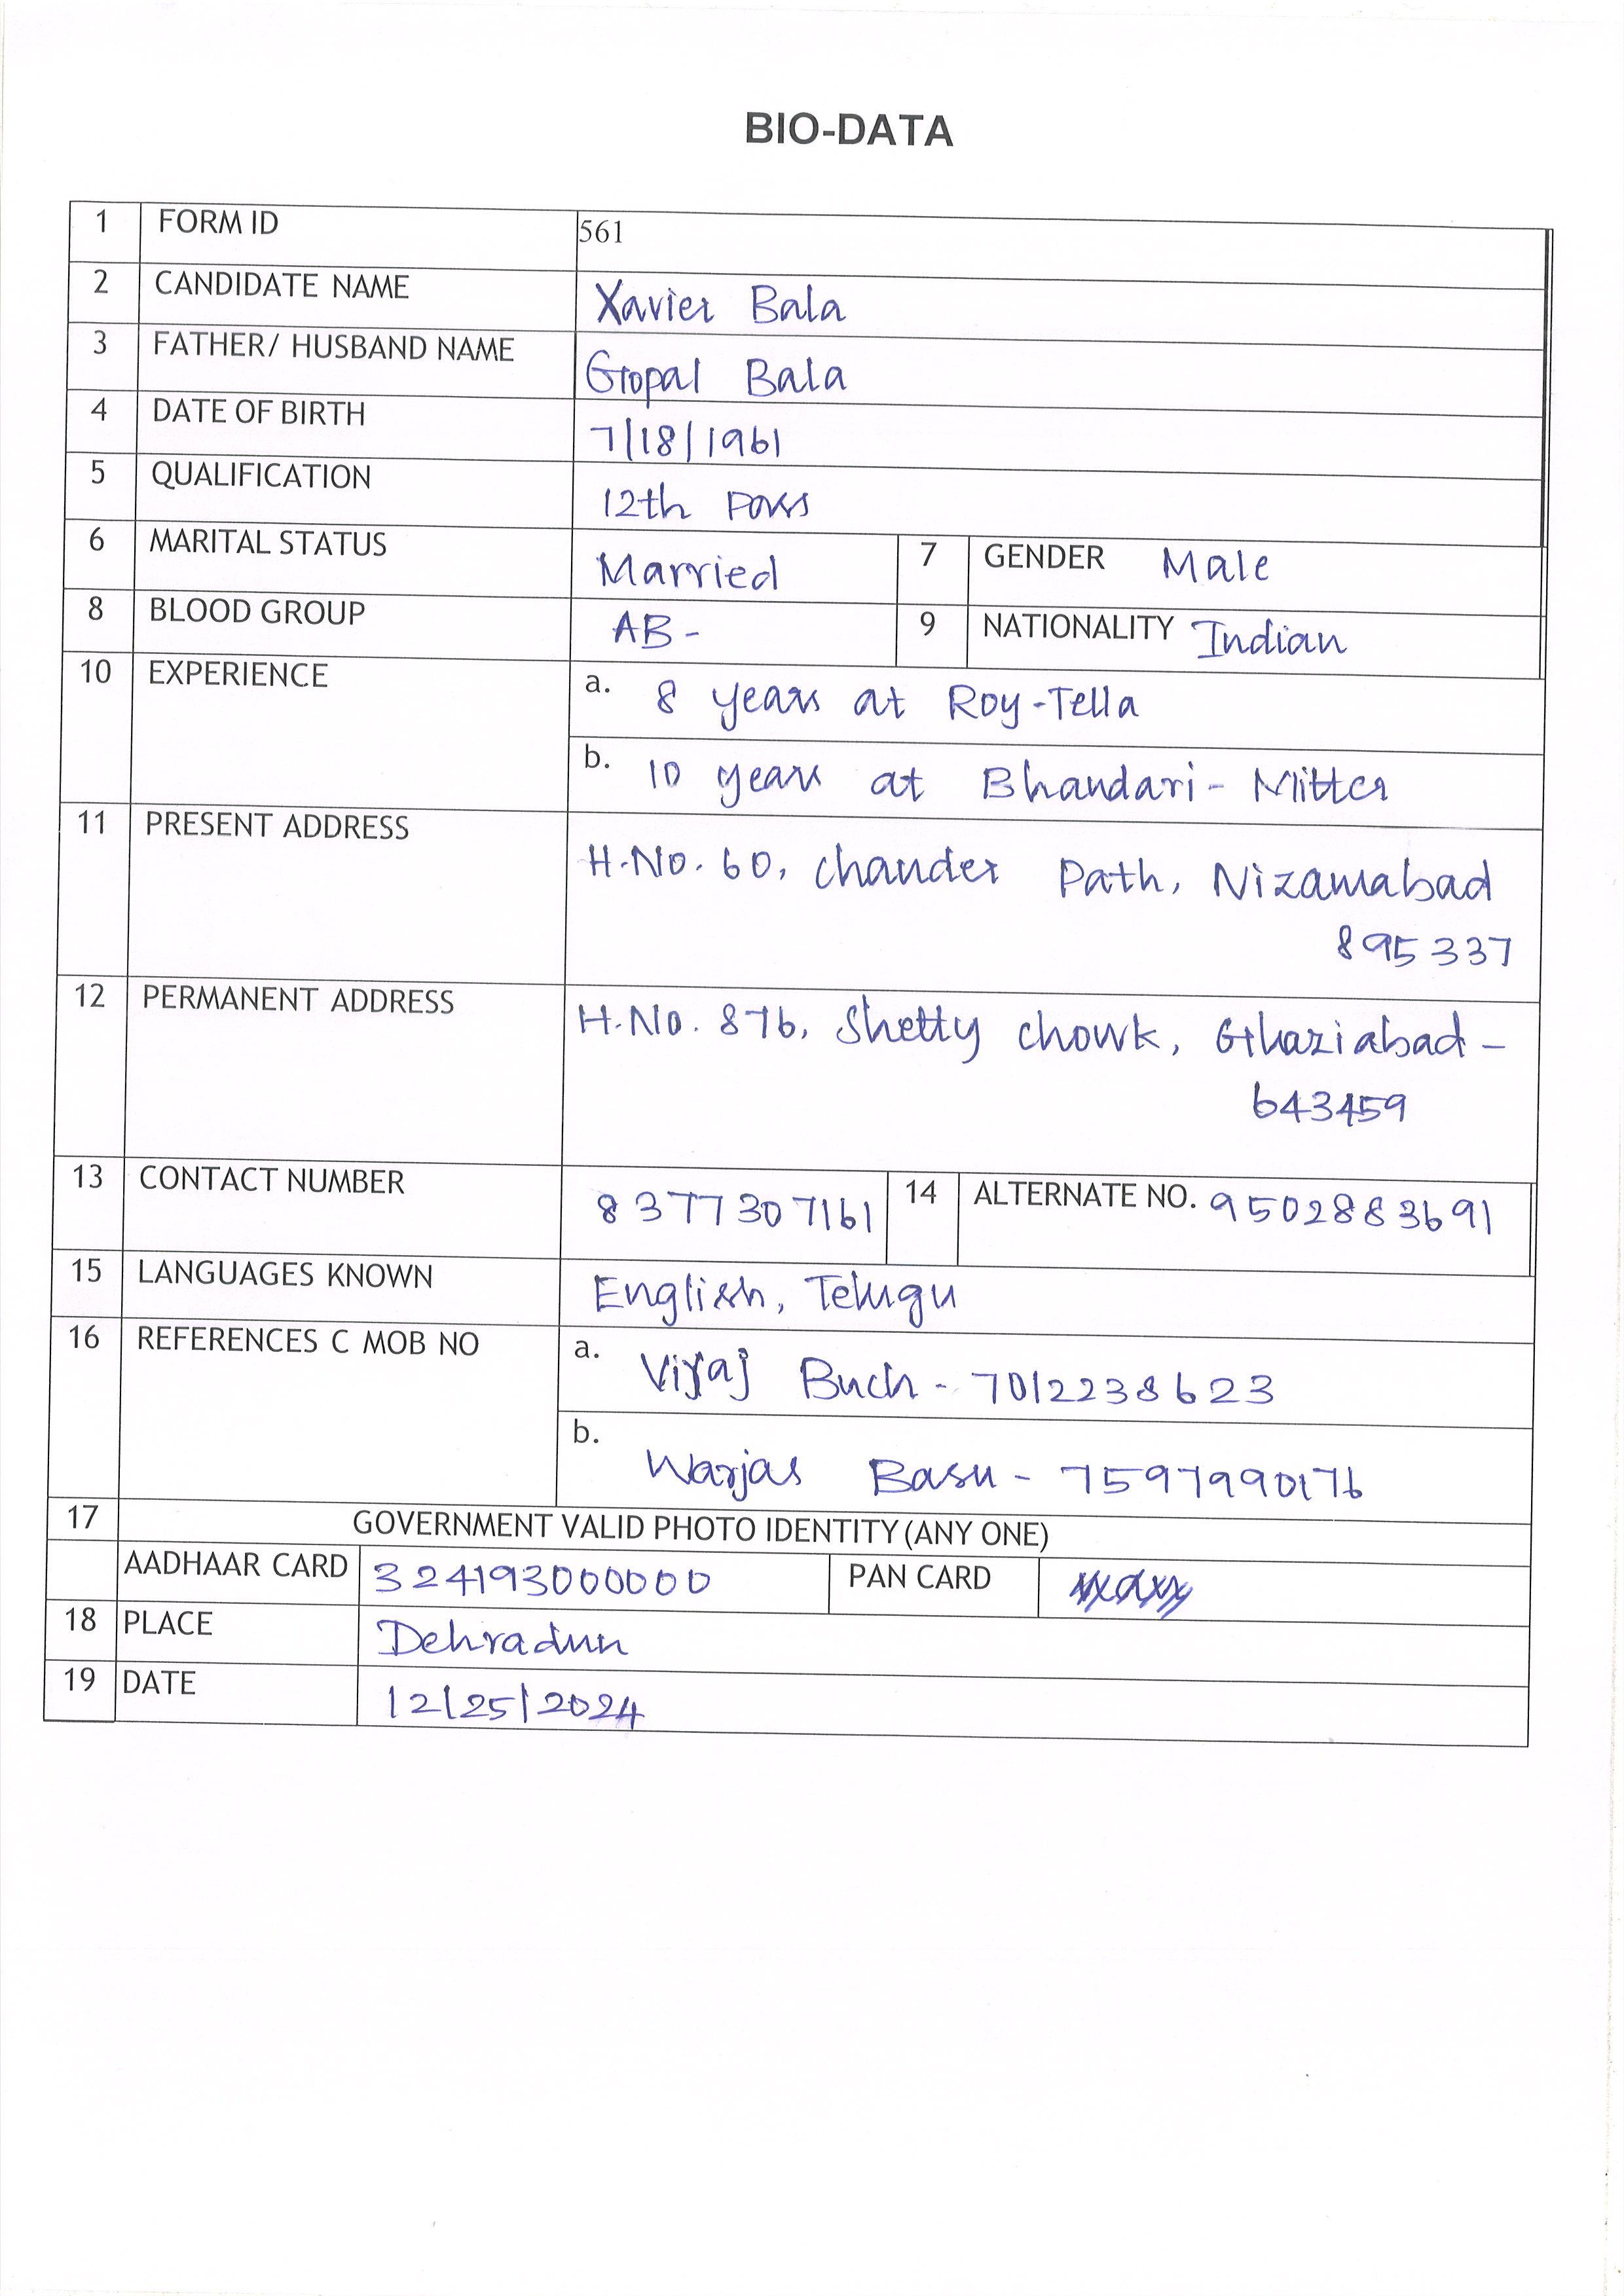 BIO-DATA
1 FORM ID 561
2 CANDIDATE NAME Xavier Bala
3 FATHER/ HUSBAND NAME Gopal Bala
4 DATE OF BIRTH 7/18/1961
5 QUALIFICATION 12th Pass
6 MARITAL STATUS Married 7 GENDER Male
8 BLOOD GROUP AB- 9 NATIONALITY Indian
10 EXPERIENCE a. 8 years at Roy-Tella
b. 10 years at Bhandari- Mitter
11 PRESENT ADDRESS H.No. 60, Chander Path, Nizamabad
895337
12 PERMANENT ADDRESS H.No. 876, Shetty Chowk, Ghaziabad -
643459
13 CONTACT NUMBER 8377307161 14 ALTERNATE NO. 9502883691
15 LANGUAGES KNOWN English, Telugu
16 REFERENCES C MOB NO a. Viraj Buch - 7012238623
b. Warjas Basu - 7597990176
17 GOVERNMENT VALID PHOTO IDENTITY (ANY ONE)
AADHAAR CARD 324193000000 PAN CARD
18 PLACE Dehradun
19 DATE 12/25/2024